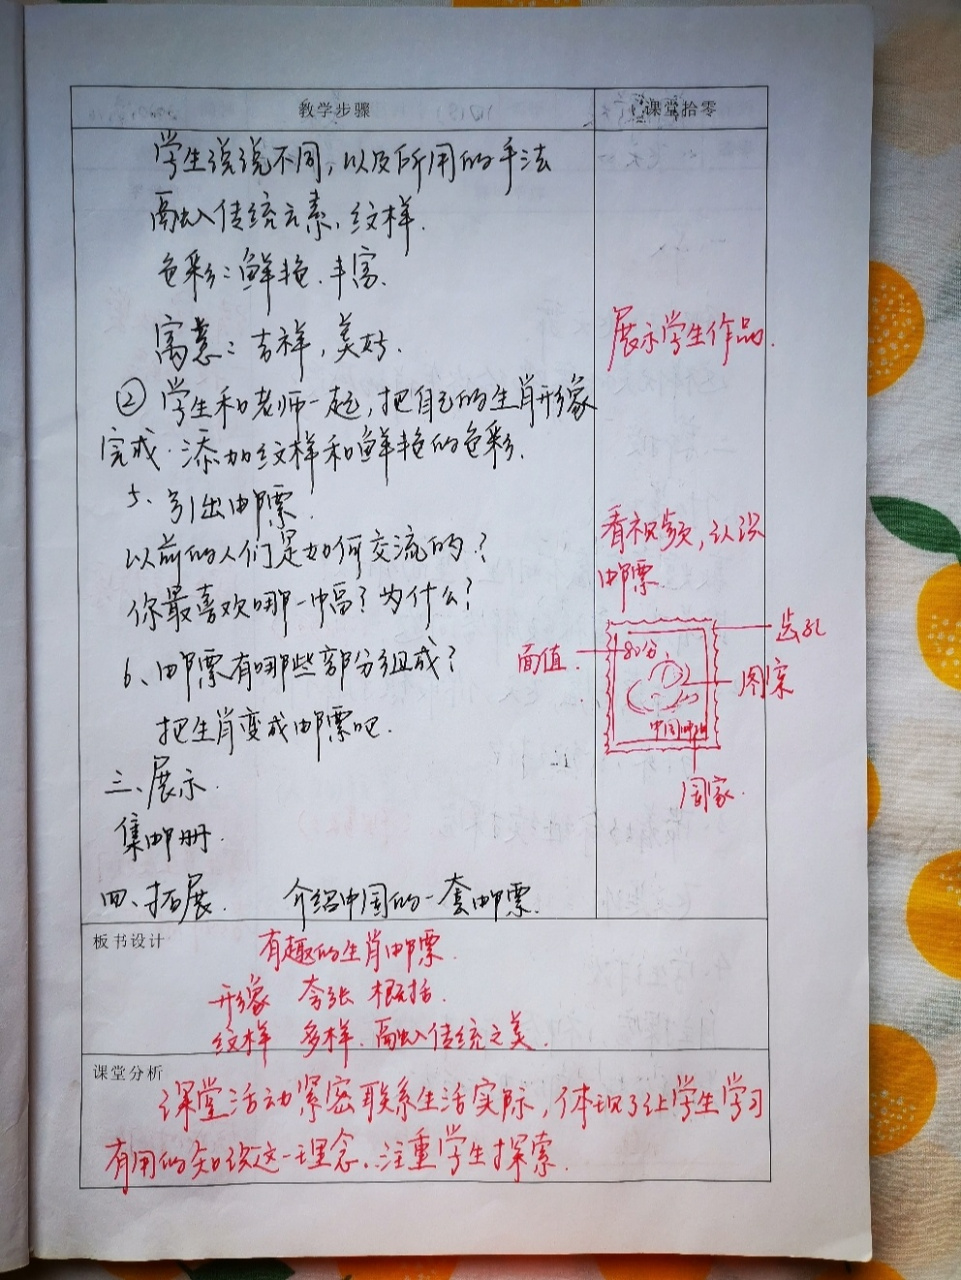 教学步骤
课堂拾零
学生说说不同，以及所用的手法
融入传统元素，纹样.
色彩：鲜艳.丰富.
寓意：吉祥，美好.
②学生和老师一起，把自己的生肖形象
完成.添加纹样和鲜艳的色彩.
5、引出邮票.
以前的人们是如何交流的？
你最喜欢哪一幅？为什么？
6、邮票有哪些部分组成？
把生肖变成邮票吧.
三、展示.
集邮册.
四、拓展. 介绍中国的一套邮票.
展示学生作品.
看视频，认识
邮票.
面值.
80分
齿孔
图案
中国邮政
国家.
板书设计
有趣的生肖邮票.
形象 夸张 概括.
纹样 多样.融入传统之美.
课堂分析
课堂活动紧密联系生活实际，体现了让学生学习
有用的知识这一理念.注重学生探索.